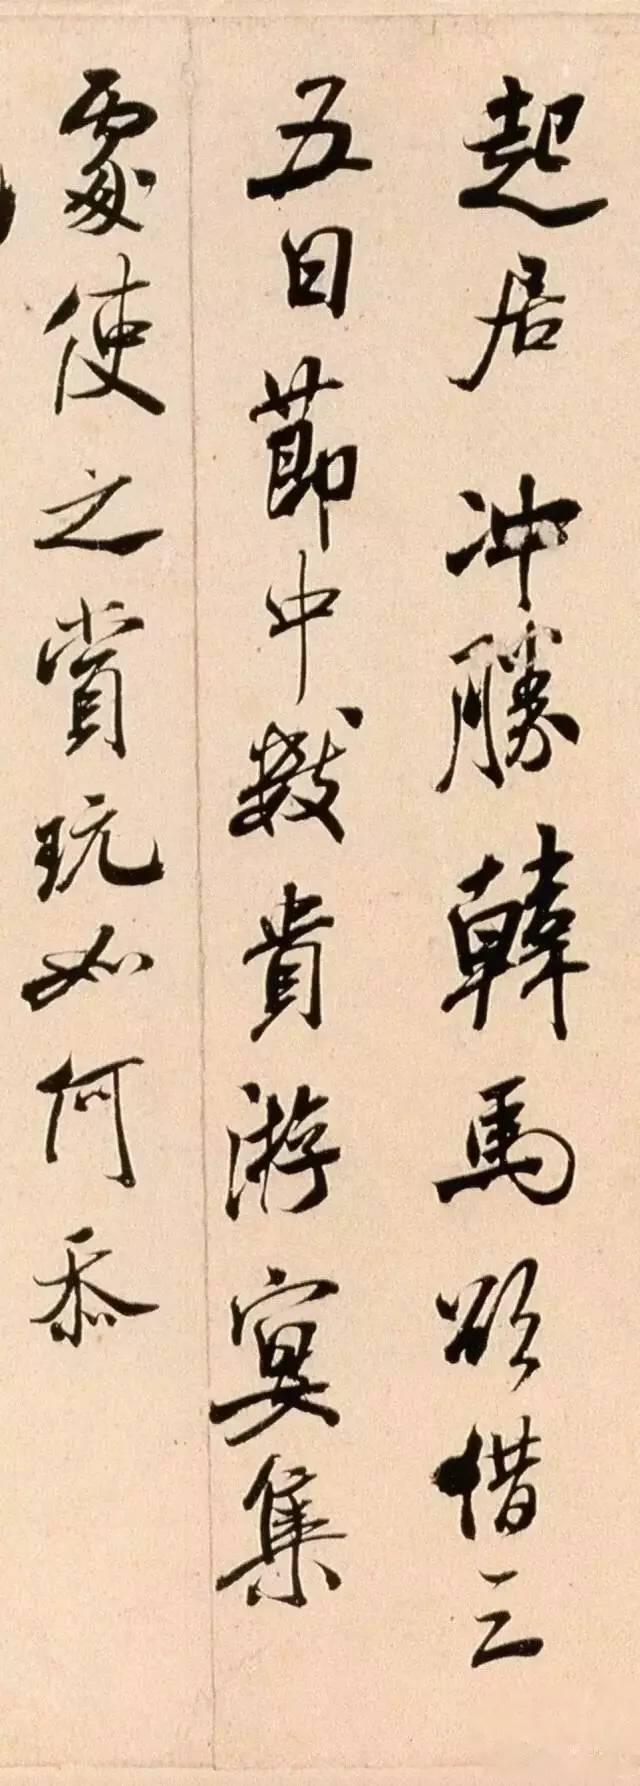 起居冲勝韓馬欲借三
五日節中數貴游宴集
處使之賞玩如何忝